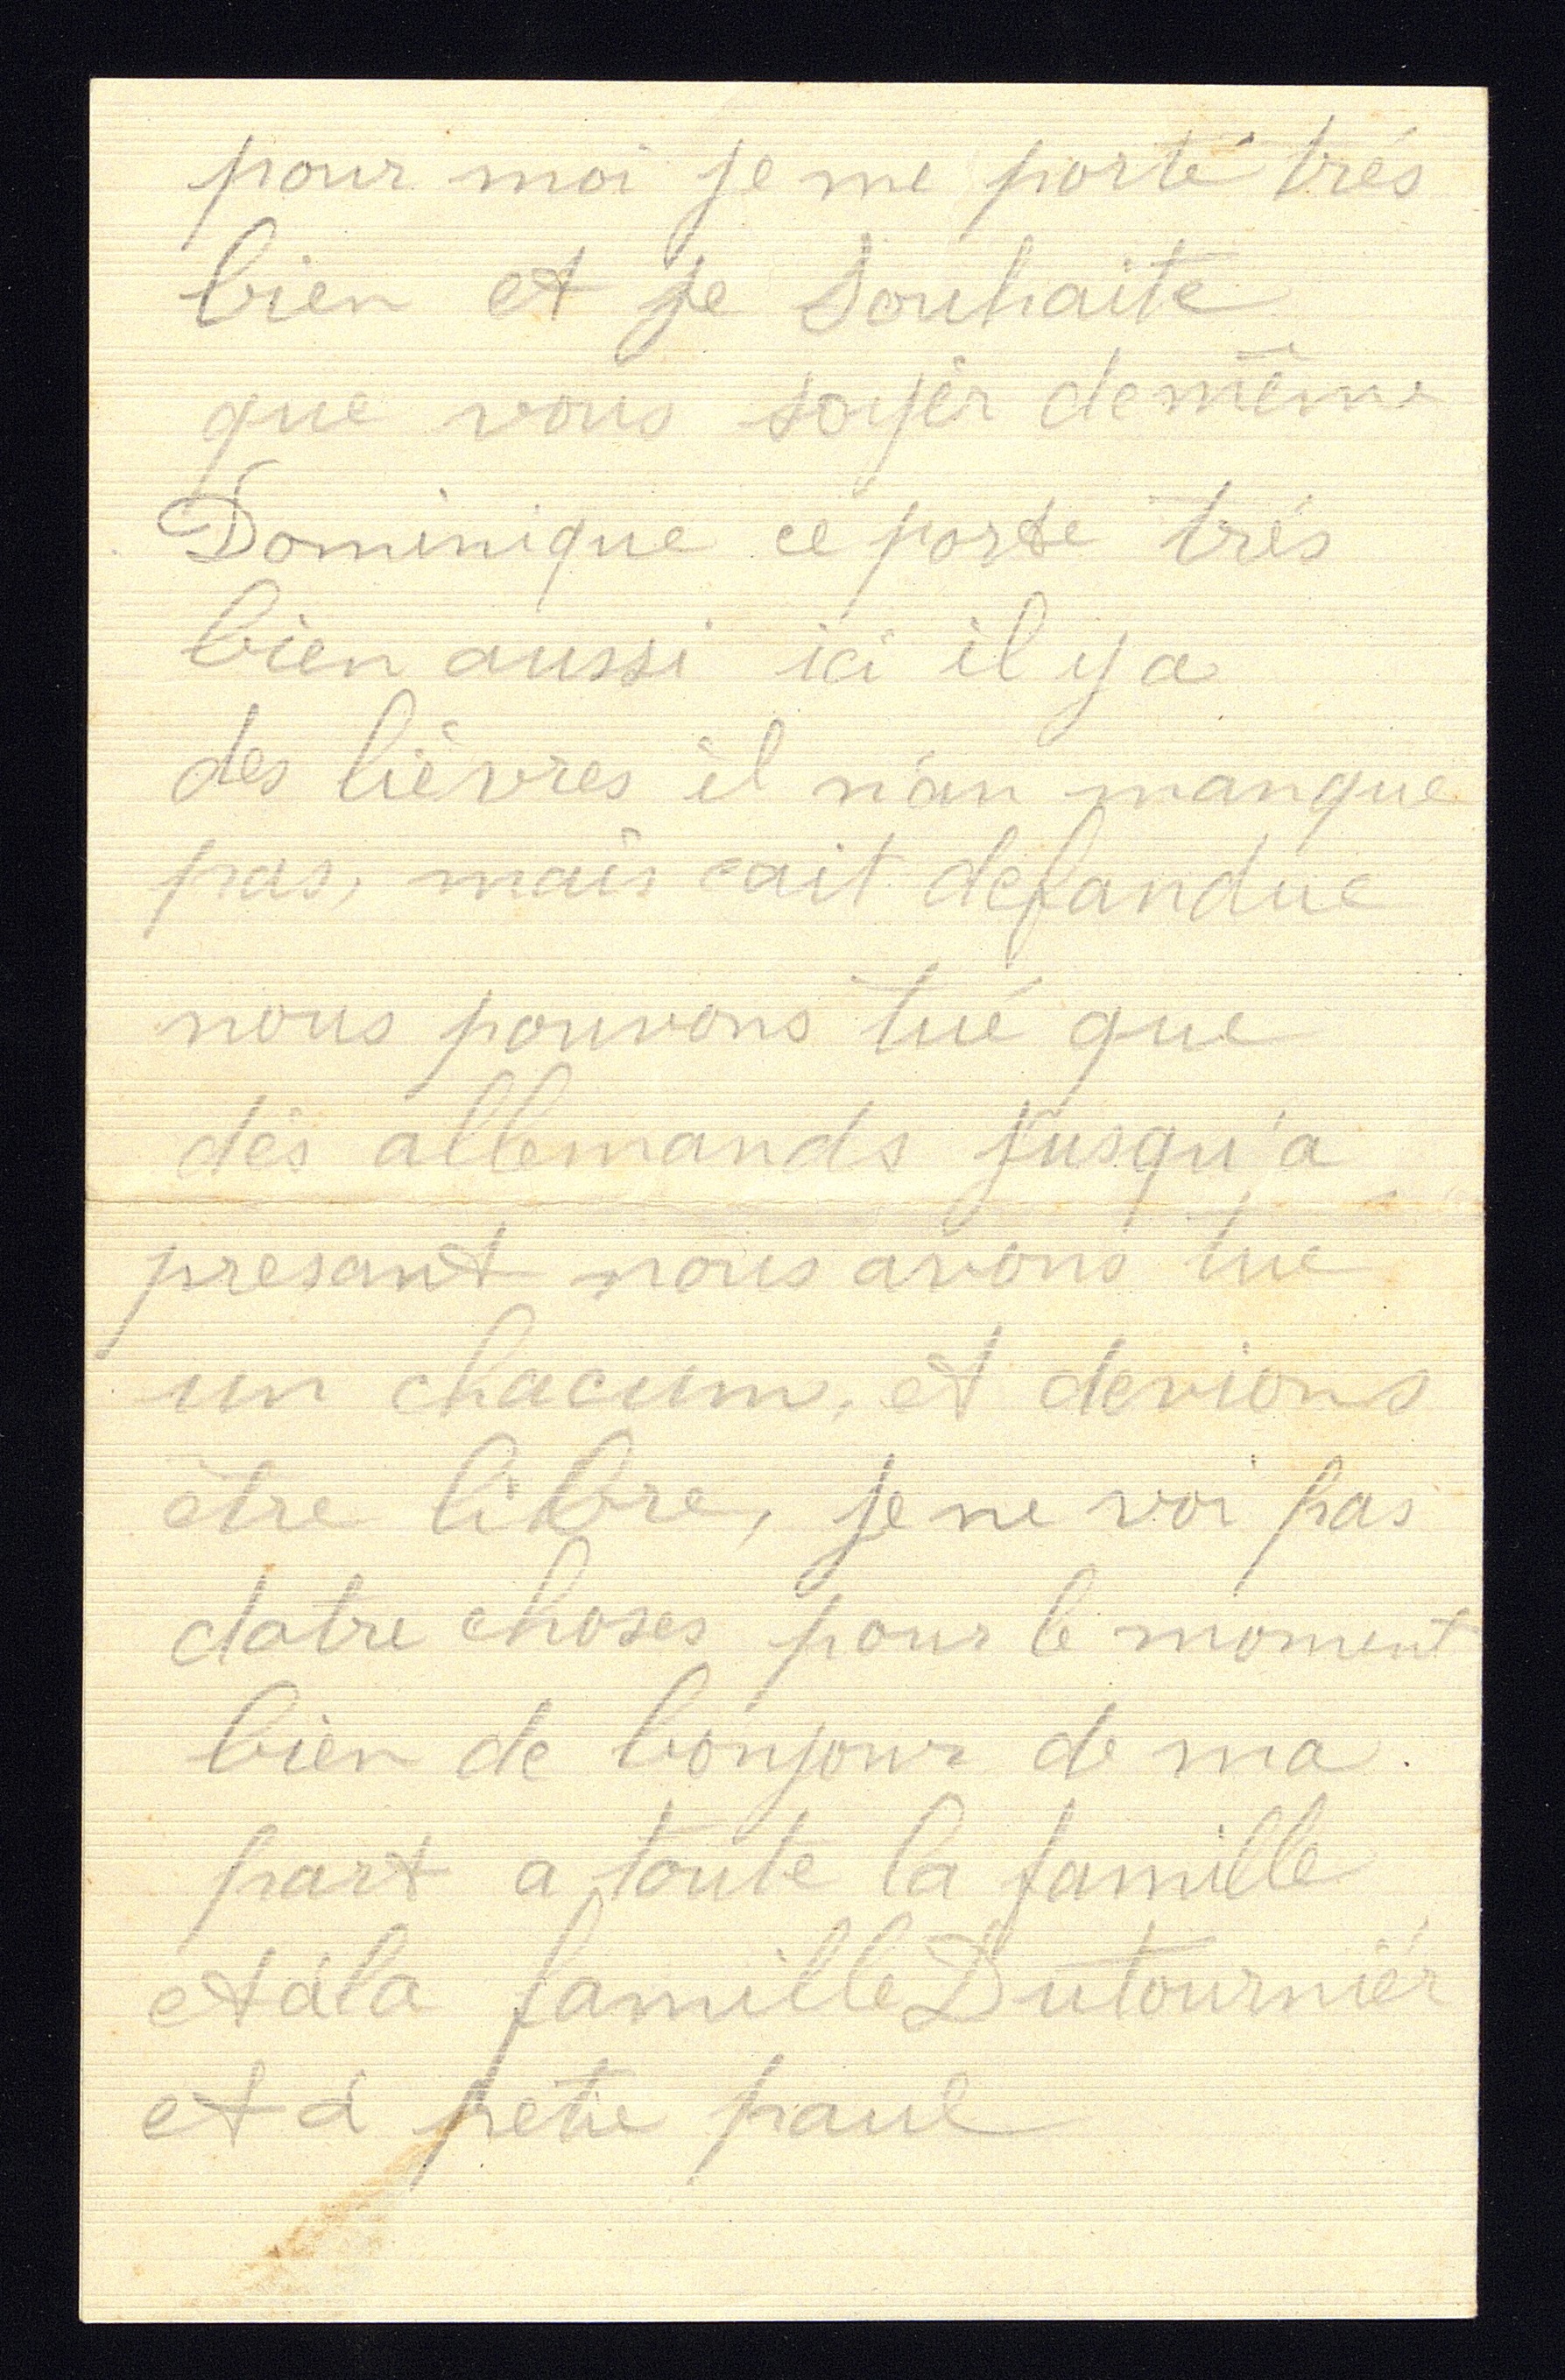 pour moi je me porte trés
bien et je souhaite
que vous soyér de même
Dominique ce porte trés
bien aussi ici il y a
des lièvres il n'an manque
pas, mais cait defandue
nous pouvons tué que
des allemands jusqu'a
presant nous avons tué
un chacum, et devions
être libre, je ne voi pas
datre choses pour le moment
bien de bonjour de ma
part a toute la famille
et à la famille Dutourniér
et à petie paul